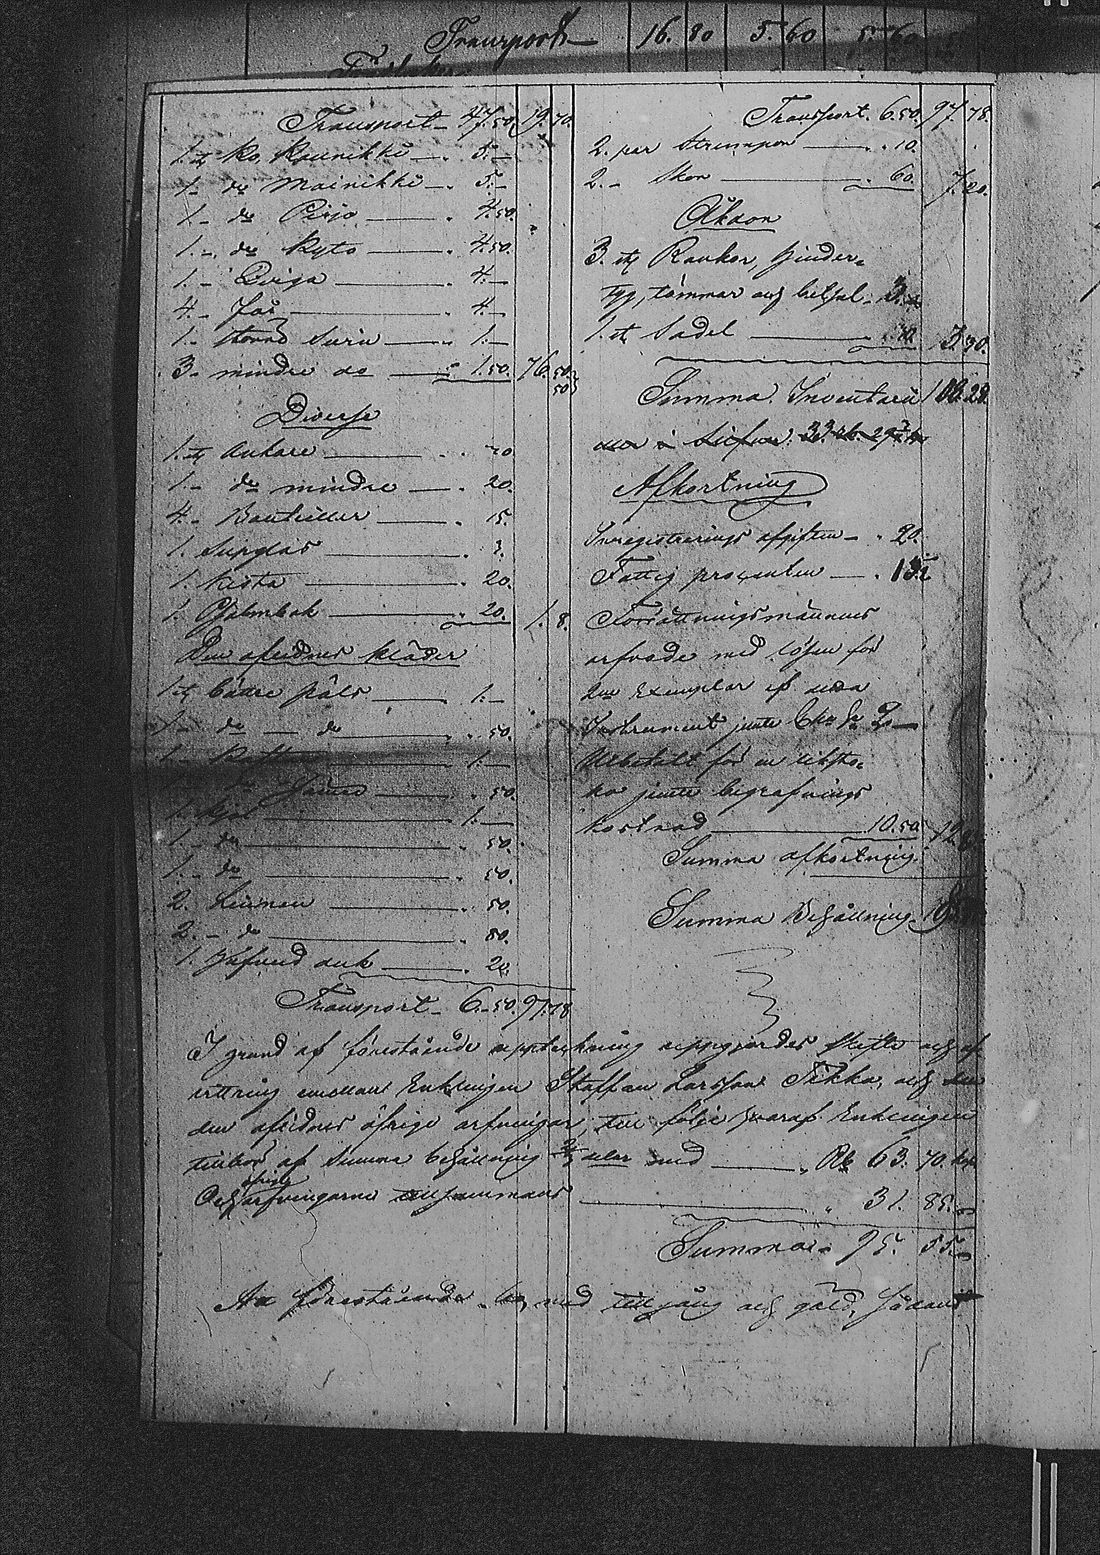 Transport 16. 80 5. 60 5. 60
Transport 47.50. 19.70.
1. st Ko, Kaunikki 5.
1 do Mainikki 5.
1 do Pirjo 4.50.
1 do Kyto 4.50.
1 Qviga 4.
4 får 4.
1 större Svin 1.
3 mindre do 1.50. 76.50.
50
Diverse
1. st Ankare
1 do mindre 20.
4 Bouteiller 15.
1. Supglas 3.
1. Kista 20.
1. Hjelmbok 20. 1. 8.
Den aflidnes kläder
1. st bättre päls 1.
1 do do 50.
1. 1.
50.
1. 1.
1. do 50.
1. do 50.
2. Linnen 50.
2. do 80.
1. hufvud duk 20.
Transport 6.50. 97.78
Transport. 6.50. 97.78.
2. par strumpor 10.
2. Skor 60. 7.20.
Åkdon
3. st Rankor, hinder-
tyg, tömmar och betsel 3.
1. st Sadel 3.30.
Summa Inventarii 108.28.
Afkortning
Inregistrerings afgiften 20.
Fattig procenten 13½
Förrättningsmännens
arfvode med lösen för
Exemplar af detta
Instrument jemte
Utbetalt för en likkis-
ta jemte begrafnings
kostnad 10.50. 12
Summa afkortning
Summa Behållning 95
I grund af förestående uppteckning uppgjordes skifte och af
vittring emellan Enklingen Staffan Larsson Tikka, och
den aflidnes öfrige arfvingar, till följe hvaraf Enklingen
tillkom af Summa behållning ⅔ delar med Rb 63. 70. kop
Och öfrige arfvingarne tillsammans 31. 85.
Summa 95. 55
At förestående bo med tillgång och gäld, sådant